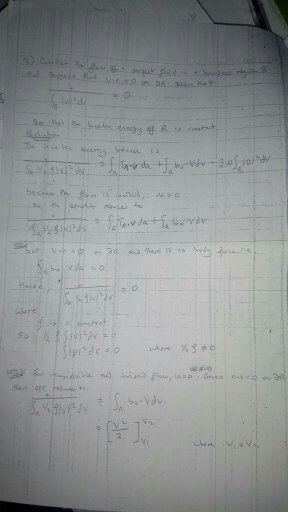 2) Consider the flow of a perfect fluid in a bounded region R
and suppose that v.n = 0 on ∂R. Show that
∫R |v|² dv = 0
So that the kinetic energy of R is constant
Solution
The kinetic energy balance is
∫R ½ρ|v|² dv = ∫R TR.v da + ∫R b0.v dv - 2μ∫R |D|² dv
because the flow is inviscid, μ = 0
So the equation reduces to
∫R ½ρ|v|² dv = ∫R TR.v da + ∫R b0.v dv
But v.n = 0 on ∂R and there is no body force, i.e.
∫R b0.v dv = 0
Hence,
∫R ½ρ|v|² dv = 0
where
ρ is a constant
So ½ρ∫|v|² dv = 0
∫|v|² dv = 0 where ½ρ ≠ 0
For incompressible and inviscid flow, μ=0. Given n.v = 0 on ∂R
then eqn reduces to
∫R ½ρ|v|² dv = ∫R b0.v dv
= [v²/2]V1 V2 where V1 = V2